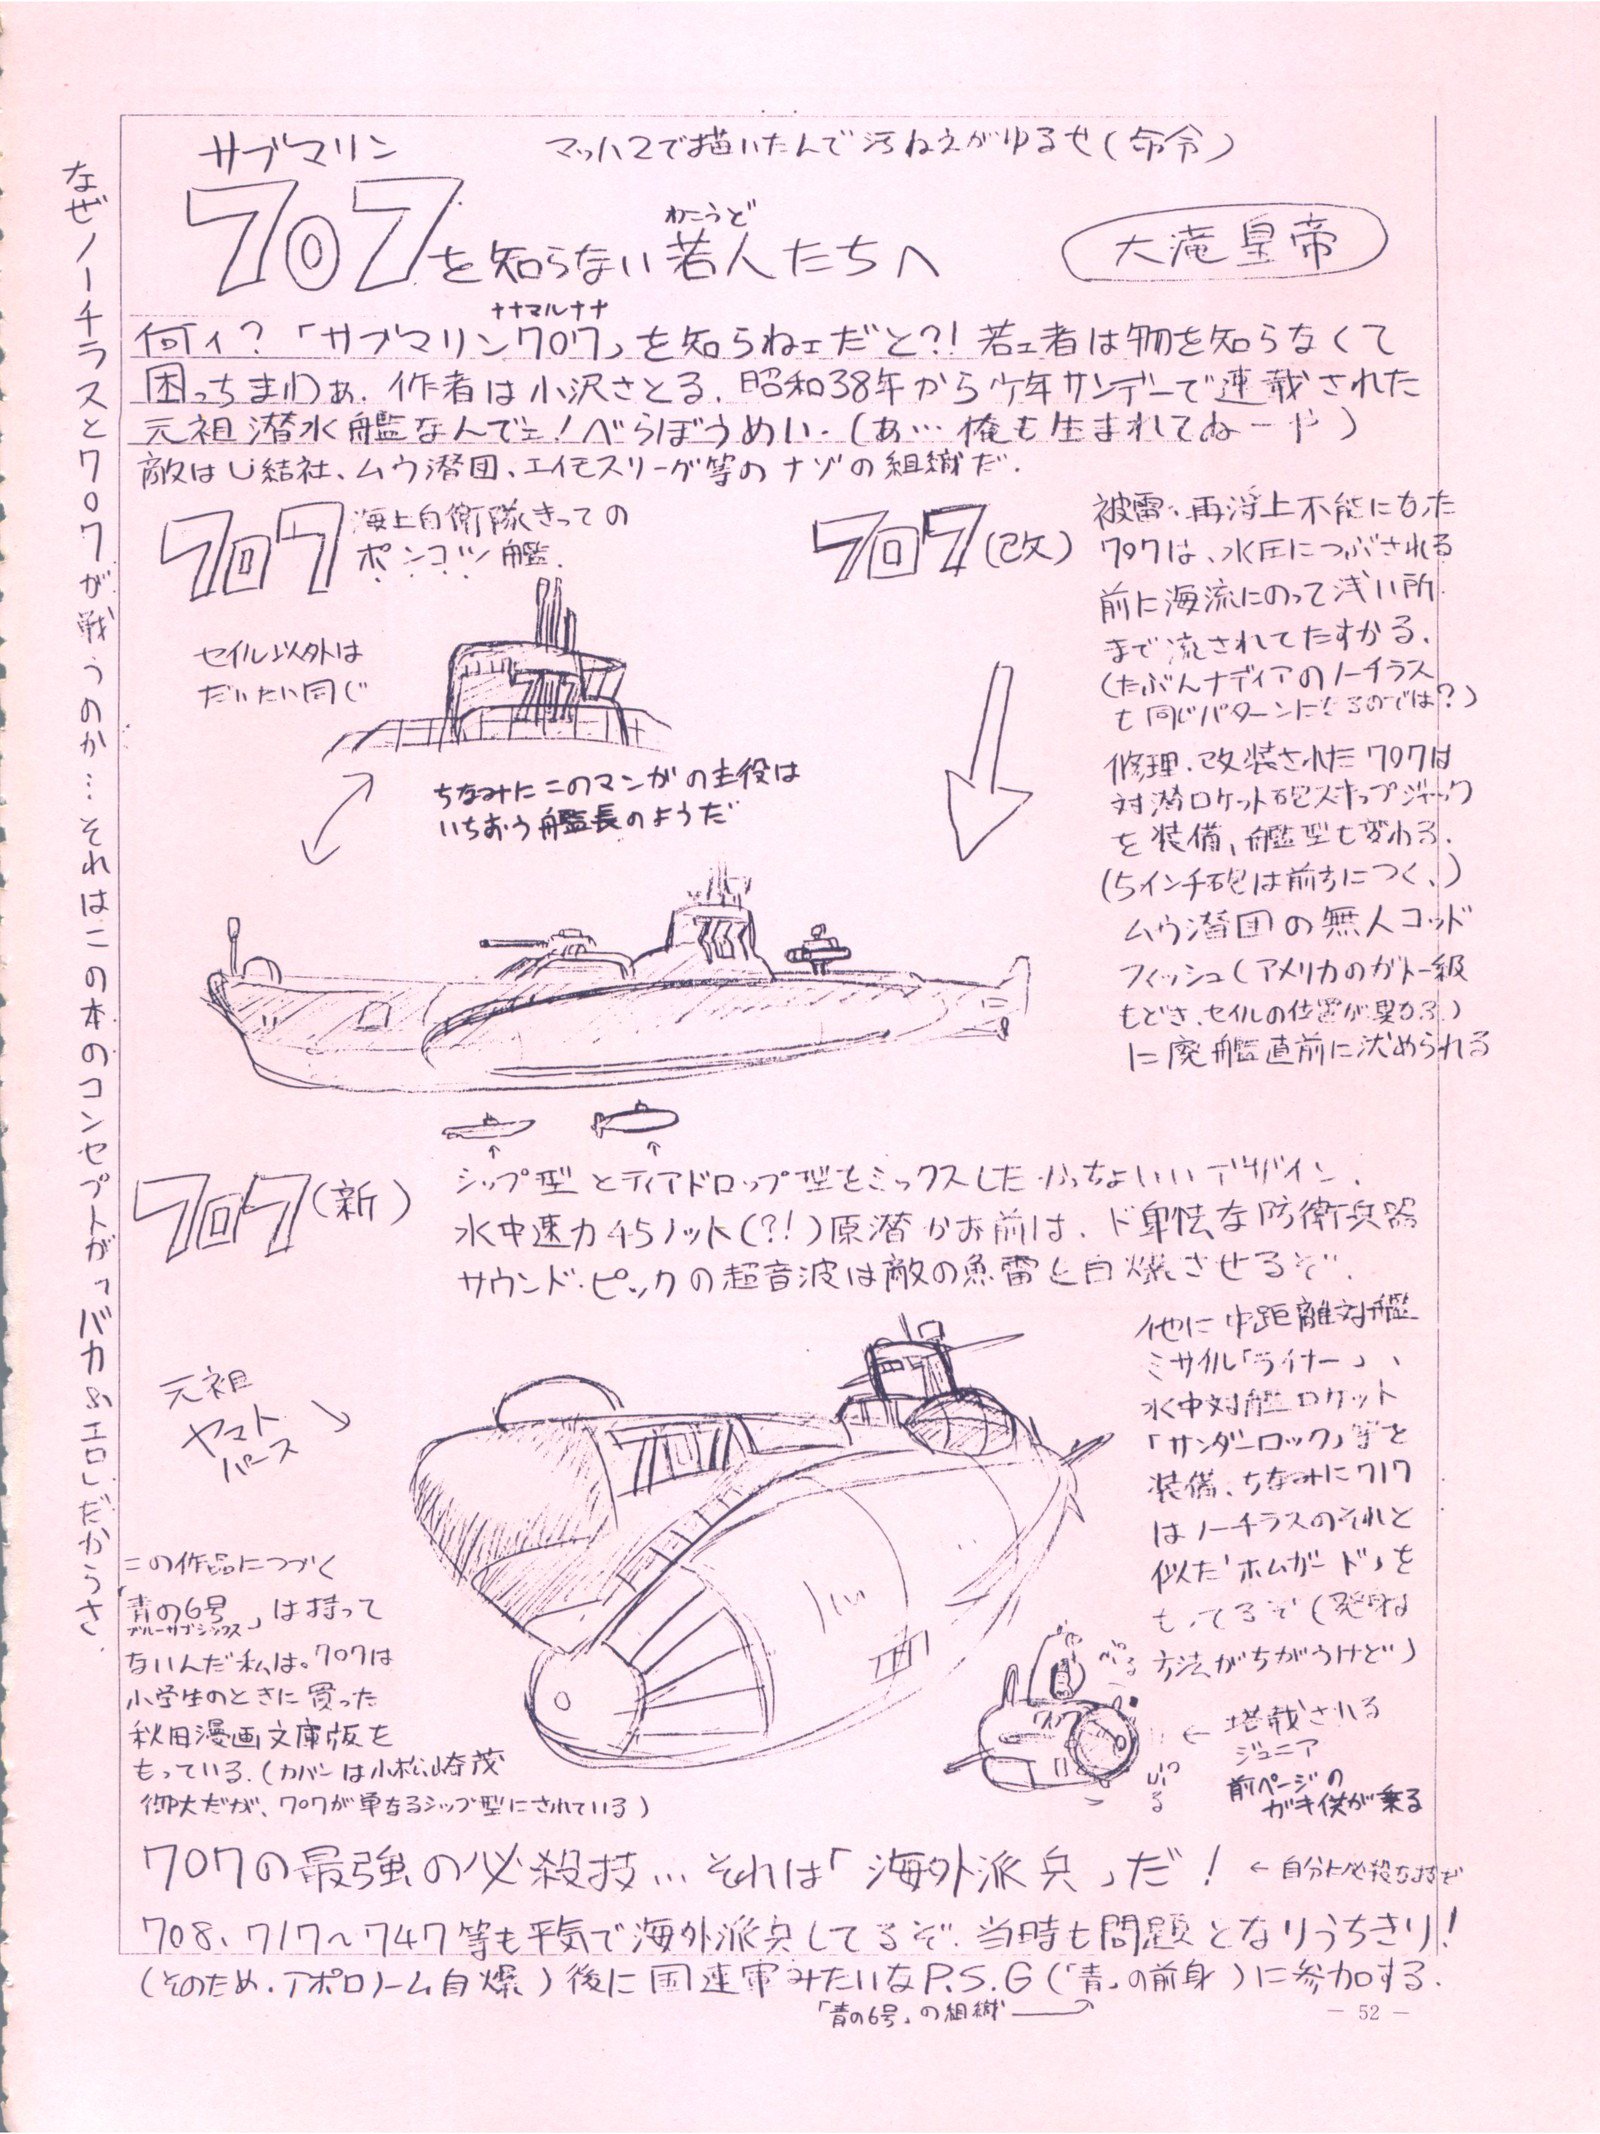 サブマリン
マッハ2で描いたんで汚ねえがゆるせ(命令)
707を知らない若人たちへ
わこうど
大滝皇帝
ナナマルナナ
何ィ?「サブマリン707」を知らねェだと?!若ェ者は物を知らなくて
困っちまわぁ.作者は小沢さとる.昭和38年から少年サンデーで連載された
元祖潜水艦なんでェ!べらぼうめい.(あ…俺も生まれてねーや)
敵はU結社、ムウ潜団、エイモスリーグ等のナゾの組織だ.
707 海上自衛隊きっての
ポンコツ艦.
セイル以外は
だいたい同じ
ちなみにこのマンガの主役は
いちおう艦長のようだ
707(改)
被雷、再浮上不能になった
707は、水圧につぶされる
前に海流にのって浅い所
まで流されてたすかる.
(たぶんナディアのノーチラス
も同じパターンになるのでは?)
修理.改装された707は
対潜ロケット砲スキップジャック
を装備、艦型も変わる.
(5インチ砲は前方につく、)
ムウ潜団の無人コッド
フィッシュ(アメリカのガトー級
もどき、セイルの位置が異なる.)
に廃艦直前に沈められる
707(新)
シップ型とティアドロップ型をミックスしたかっちょいいデザイン.
水中速力45ノット(?!)原潜かお前は、ド卑怯な防衛兵器
サウンド・ピックの超音波は敵の魚雷を自爆させるぞ.
元祖
ヤマト
パース
他に中距離対艦
ミサイル「ライナー」、
水中対艦ロケット
「サンダーロック」等を
装備、ちなみに717
はノーチラスのそれと
似た「ホムガード」を
もってるぞ(発射
方法がちがうけど)
この作品につづく
「青の6号」は持って
ブルーサブシックス
ないんだ私は。707は
小学生のときに買った
秋田漫画文庫版を
もっている.(カバーは小松崎茂
御大だが、707が単なるシップ型にされている)
←塔載される
ジュニア
前ページの
ガキ供が乗る
707の最強の必殺技…それは「海外派兵」だ!
708、717〜747等も平気で海外派兵してるぞ.当時も問題となりうちきり!
(そのため.アポロノーム自爆)後に国連軍みたいなP.S.G(「青」の前身)に参加する.
「青の6号」の組織
- 52 -
なぜノーチラスと707が戦うのか…それはこの本のコンセプトが「バカ&エロ」だからさ.